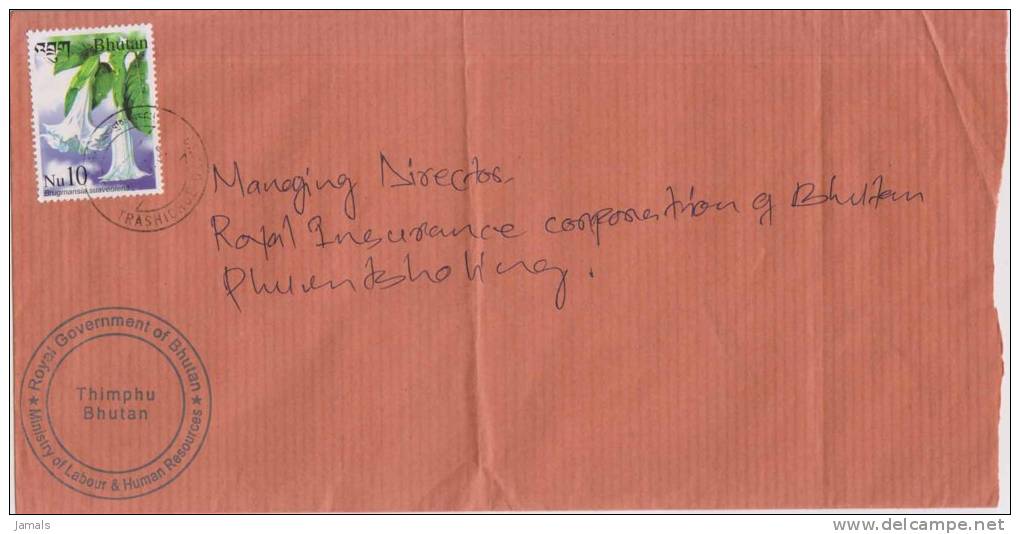 འབྲུག Bhutan
Nu10
Brugmansia suaveolens
TRASHICHHO
Managing Director
Royal Insurance corporation of Bhutan
Phuentsholing.
★ Royal Government of Bhutan ★
Ministry of Labour & Human Resources
Thimphu
Bhutan
Jamals
www.delcampe.net